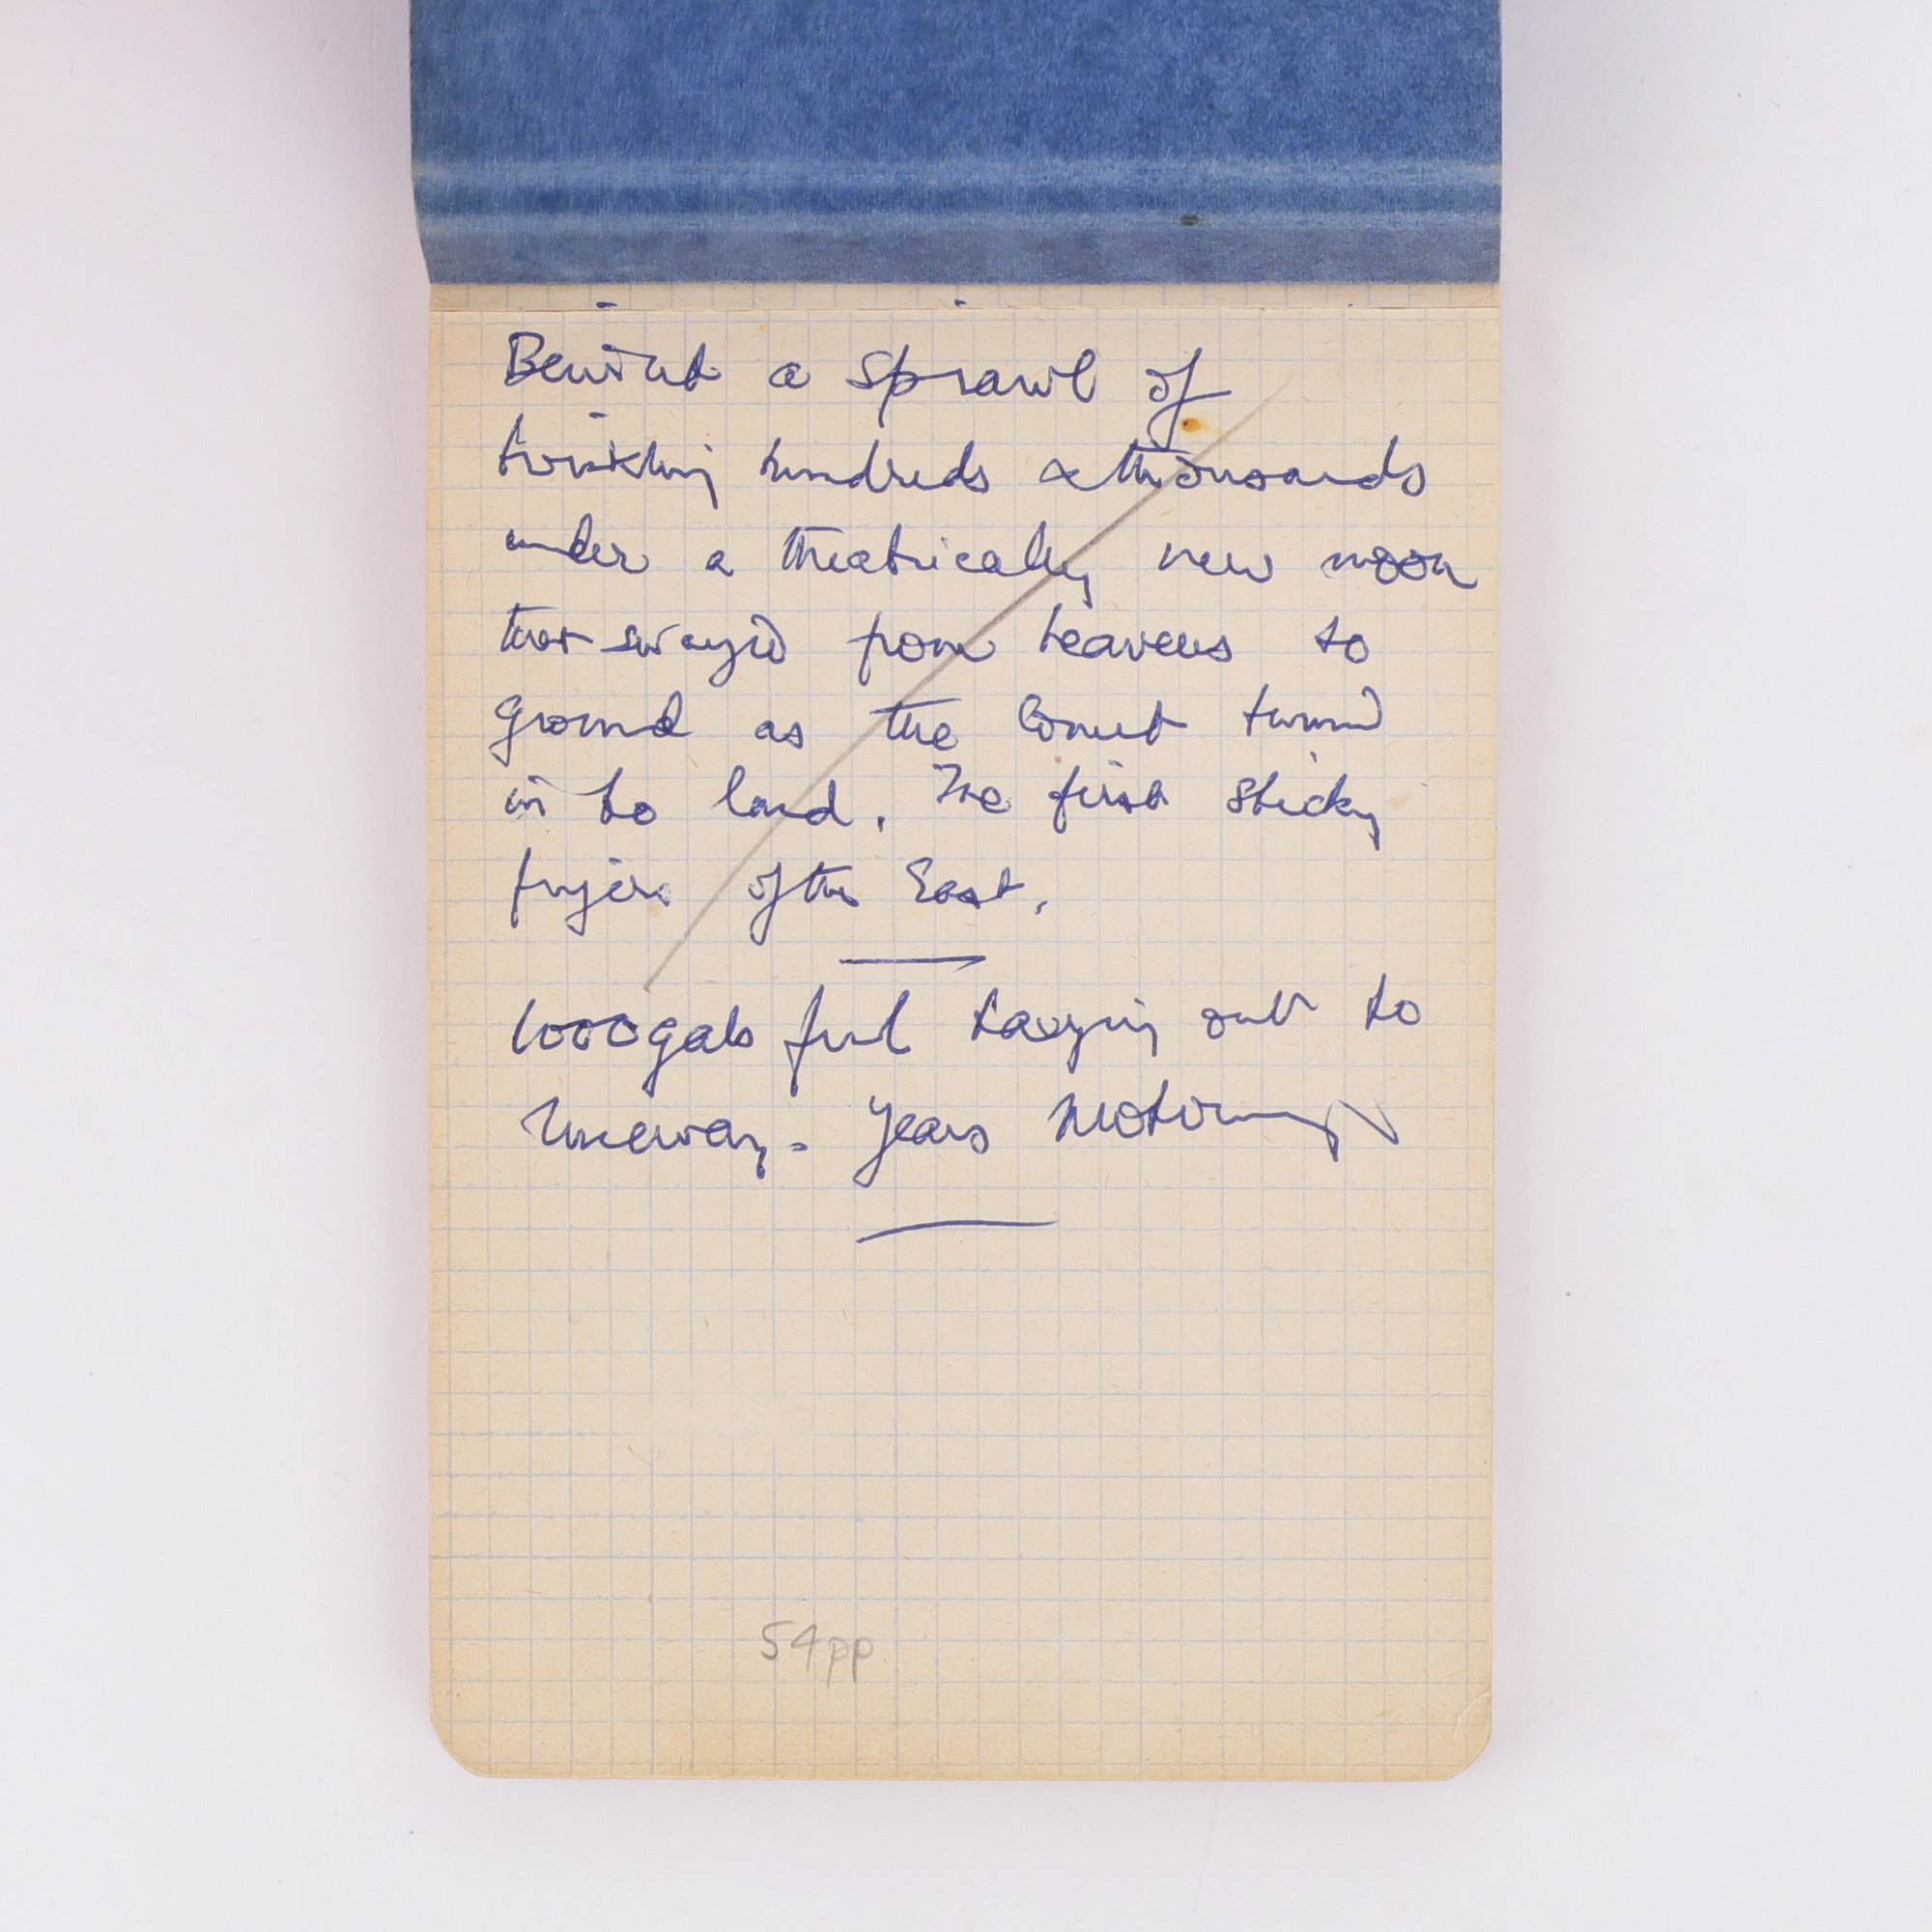 Beirut a sprawl of
twinkling hundreds & thousands
under a theatrically new moon
that swayed from heavens to
ground as the Comet turned
in to land. The first sticky
fingers of the East.
1000 gals fuel taxying out to
runway. Years motoring
54pp